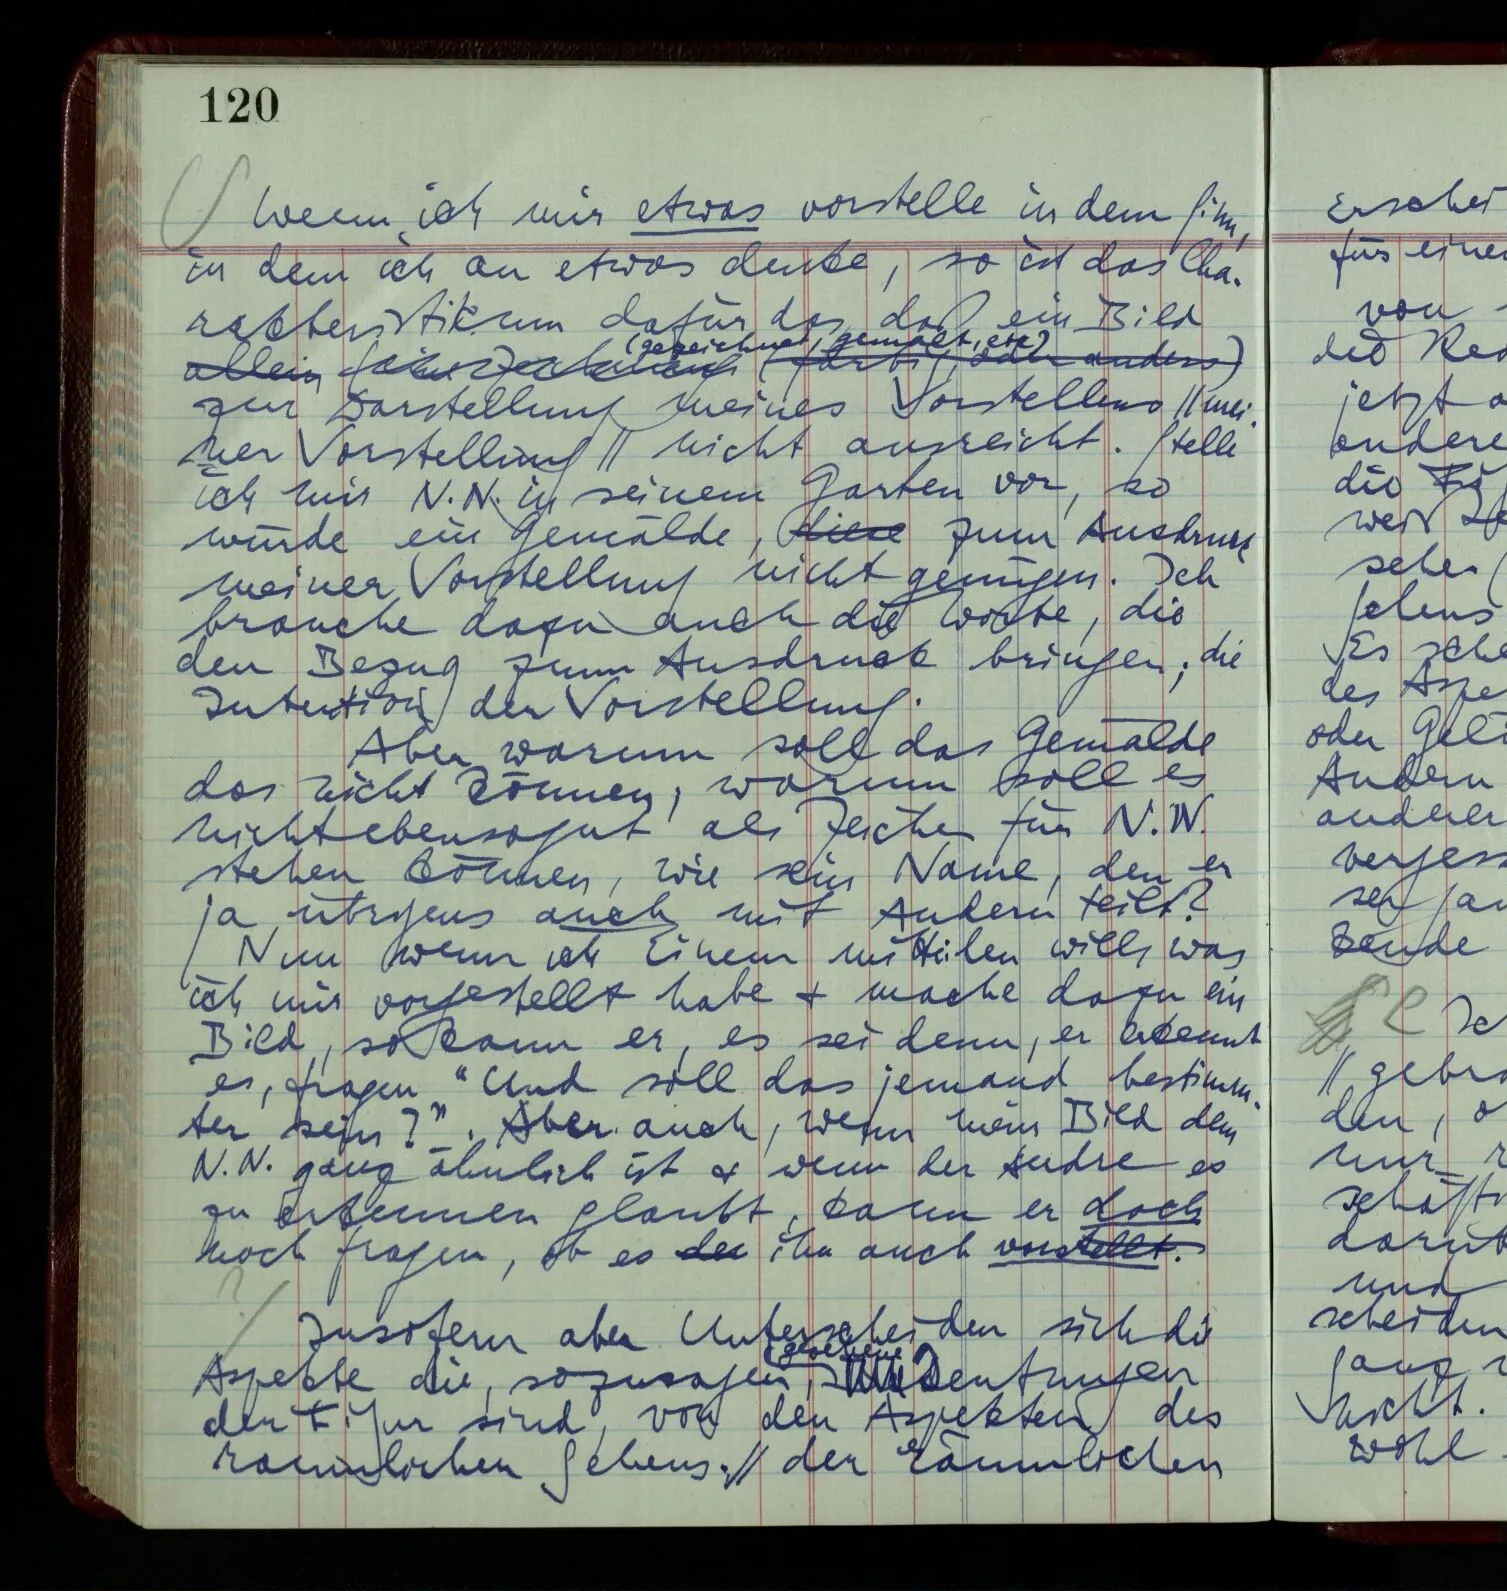 120
Wenn ich mir etwas vorstelle in dem Sinn,
in dem ich an etwas denke, so ist das Cha-
rakteristikum dafür das, daß ein Bild
(gezeichnet, gemalt, etc)
allein (farbig oder anders)
zur Darstellung meines Vorstellens // mei-
ner Vorstellung // nicht ausreicht. Stelle
ich mir N.N. in seinem Garten vor, so
würde ein Gemälde, diese zum Ausdruck
meiner Vorstellung nicht genügen. Ich
brauche dazu auch die Worte, die
den Bezug zum Ausdruck bringen; die
Intention der Vorstellung.
Aber warum soll das Gemälde
das nicht können, warum soll es
nicht ebensogut als Zeichen für N.N.
stehen können, wie sein Name, den er
ja übrigens auch mit Andern teilt?
Nun wenn ich Einem mitteilen will, was
ich mir vorgestellt habe & mache dazu ein
Bild, so kann er, es sei denn, er erkennt
es, fragen "Und soll das jemand bestimm-
ter sein?". Aber auch, wenn mein Bild dem
N.N. ganz ähnlich ist & wenn der Andre es
zu erkennen glaubt, kann er doch
noch fragen, ob es den ihn auch vorstellt.
?
Insofern aber Unterscheiden sich die
(gesehene
Aspekte die, sozusagen, Deutungen
der Figur sind, von den Aspekten des
räumlichen Sehens. // der räumlichen
Erschei
für einen
von
des
jetzt
andere
die
weit
sehen
Sehens
Es sche
des Aspe
oder
Andern
anderer
vergess
sei
Ic
// gebra
den,
nur
schäft
darüb
und
scheiden
ganz
nicht.
wohl